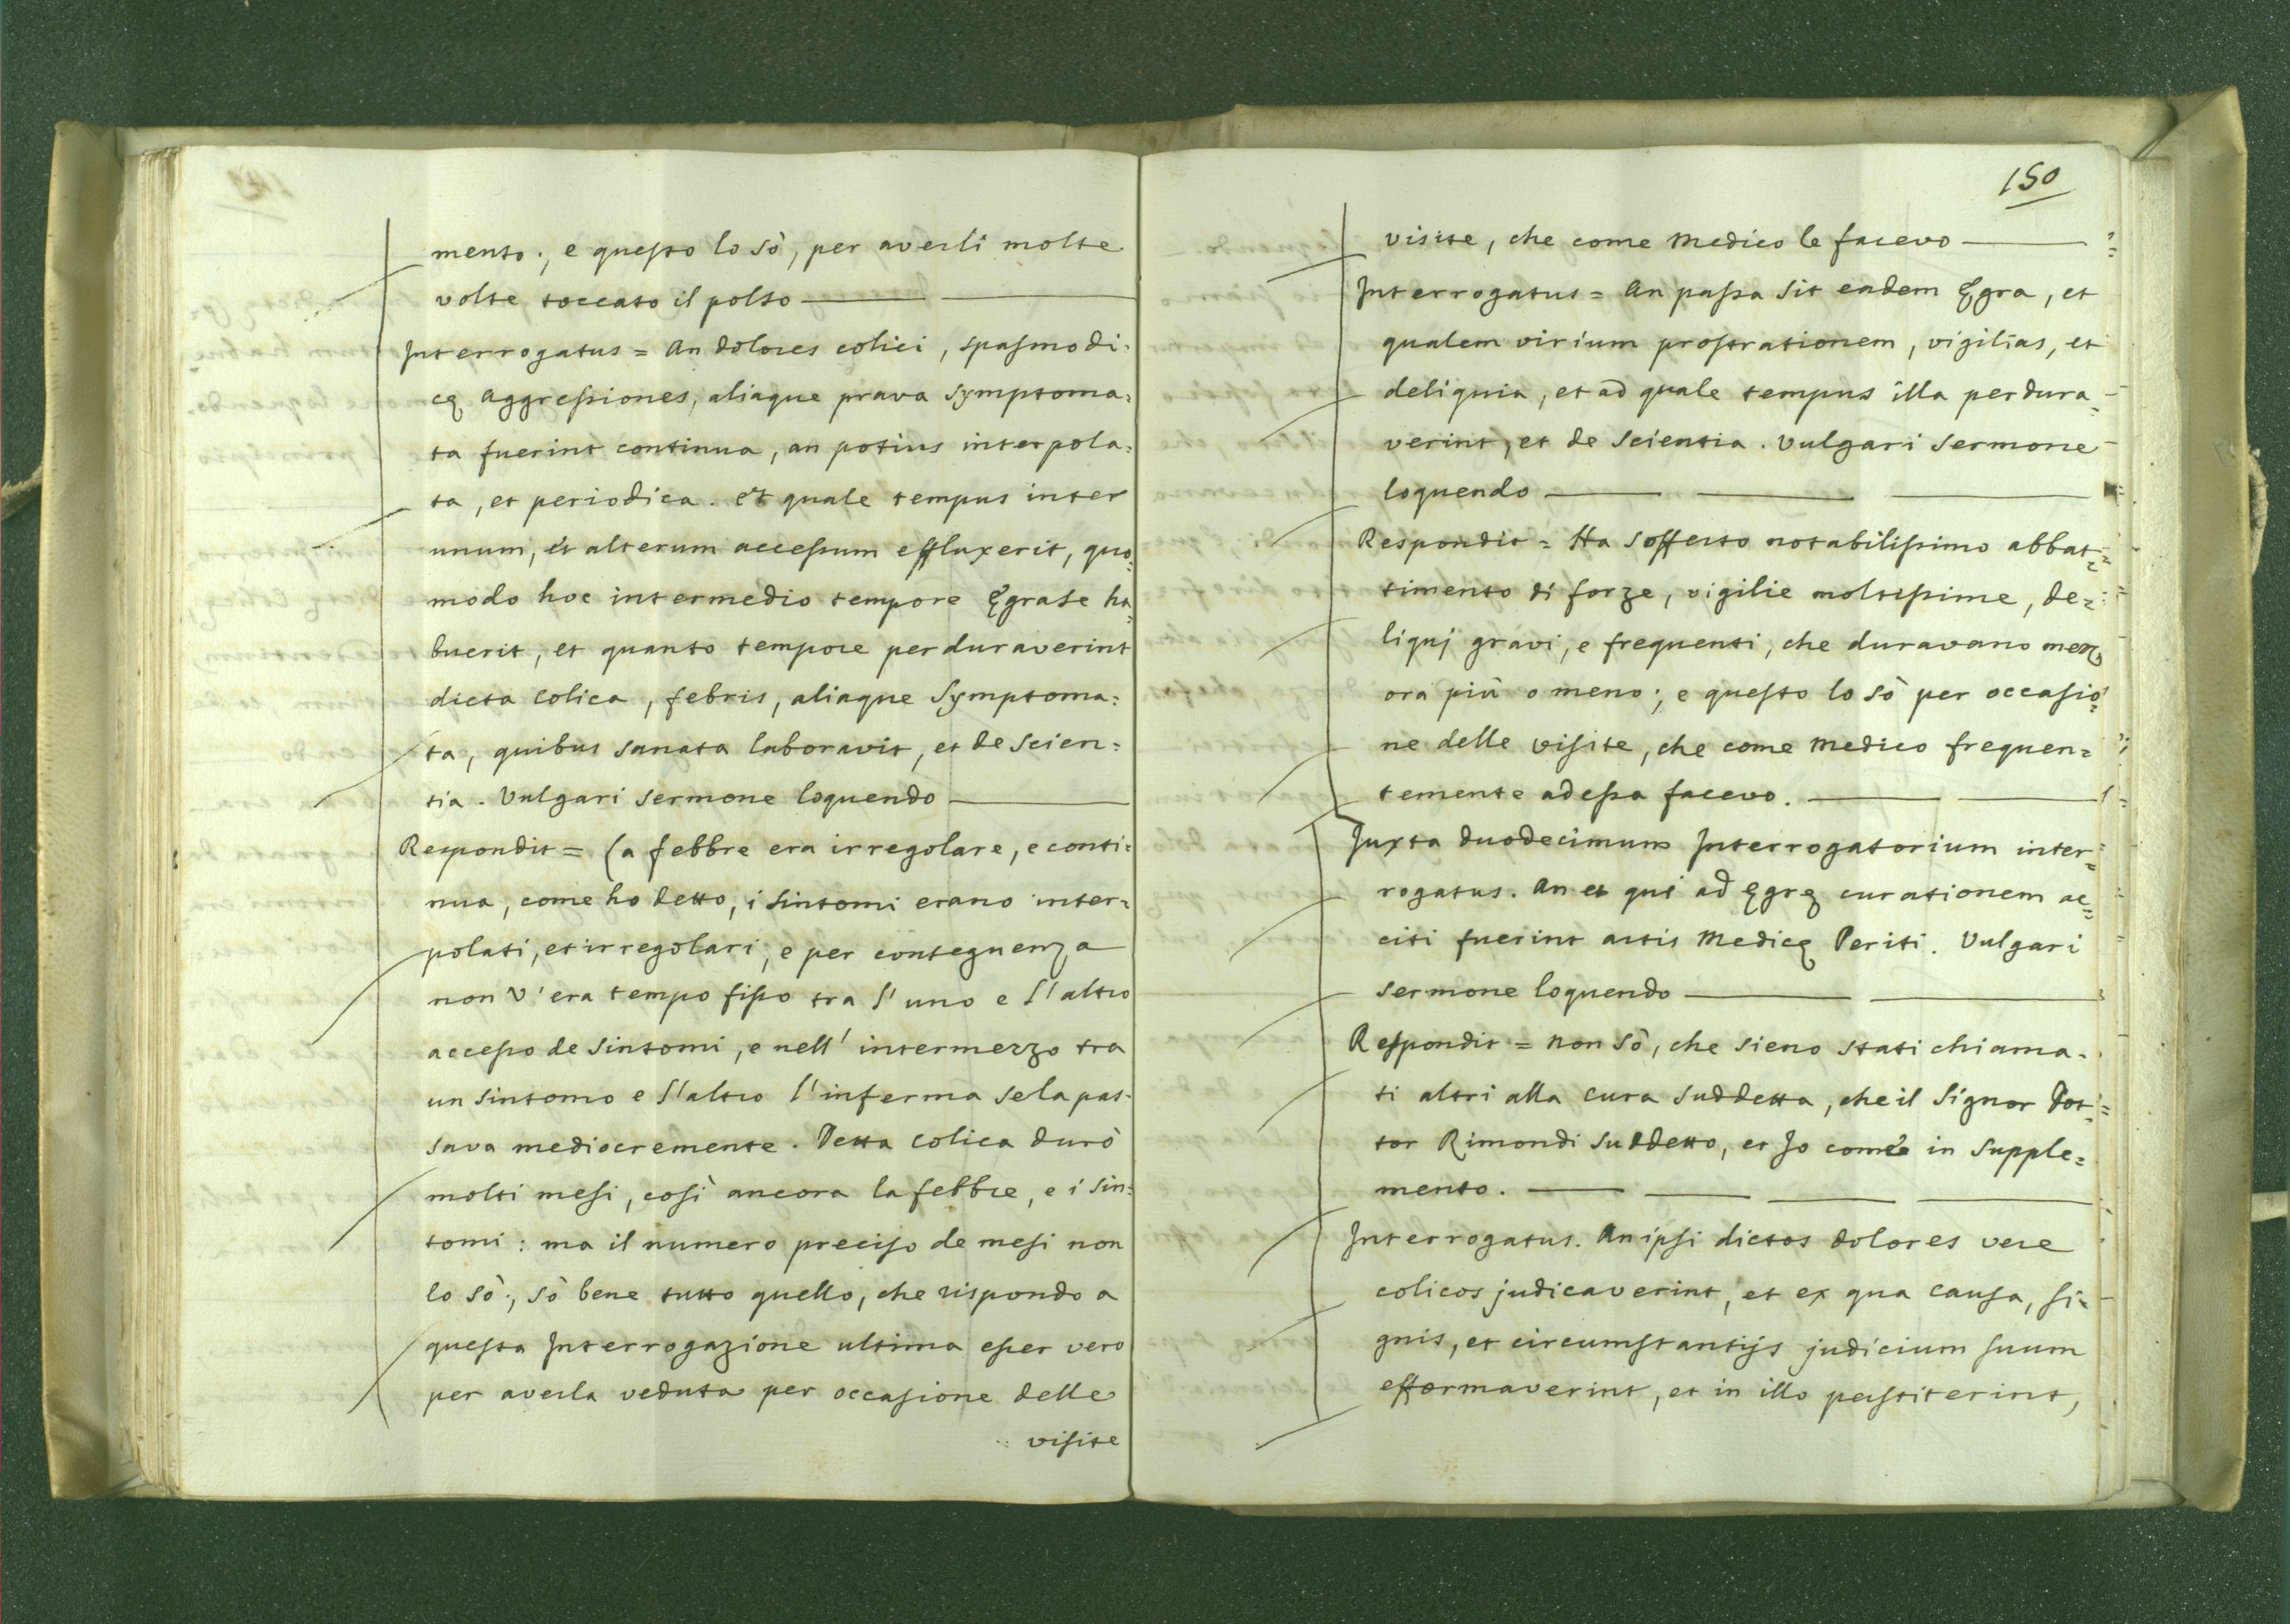 mento; e questo lo sò, per averli molte
volte toccato il polso
Interrogatus = An dolores colici, spasmodi=
cę Aggressiones, aliaque prava symptoma=
ta fuerint continua, an potius interpola=
ta, et periodica. et quale tempus inter
unum, et alterum accessum effluxerit, quo=
modo hoc intermedio tempore Ęgra se ha=
buerit, et quanto tempore perduraverint
dicta Colica, febris, aliaque Symptoma=
ta, quibus sanata laboravit, et de scien=
tia. Vulgari sermone loquendo
Respondit = La febbre era irregolare, e conti=
nua, come ho detto, i sintomi erano inter=
polati, et irregolari, e per conseguenza
non v'era tempo fisso tra l'uno e l'altro
accesso de sintomi, e nell'intermezzo tra
un sintomo e l'altro l'inferma se la pas=
sava mediocremente. Detta colica durò
molti mesi, così ancora la febbre, e i sin=
tomi: ma il numero preciso de mesi non
lo sò; sò bene tutto quello, che rispondo a
questa Interrogazione ultima esser vero
per averla veduta per occasione delle
visite
150
visite, che come Medico le facevo
Interrogatus = An passa sit eadem Ęgra, et
qualem virium prostrationem, vigilias, et
deliquia, et ad quale tempus illa perdura=
verint, et de scientia. Vulgari sermone
loquendo
Respondit = Ha sofferto notabilissimo abbat=
timento di forze, vigilie moltissime, de=
liquj gravi, e frequenti, che duravano mezz'
ora più o meno; e questo lo sò per occasio=
ne delle visite, che come Medico frequen=
temente ad essa facevo.
Juxta duodecimum Interrogatorium inter=
rogatus. An et qui ad ęgrę curationem ac=
citi fuerint artis Medicę Periti. Vulgari
sermone loquendo
Respondit = Non sò, che sieno stati chiama=
ti altri alla cura suddetta, che il Signor Dot=
tor Rimondi suddetto, et Jo come in supple=
mento.
Interrogatus. An ipsi dictos dolores vere
colicos judicaverint, et ex qua causa, si=
gnis, et circumstantijs judicium suum
efformaverint, et in illo perstiterint,